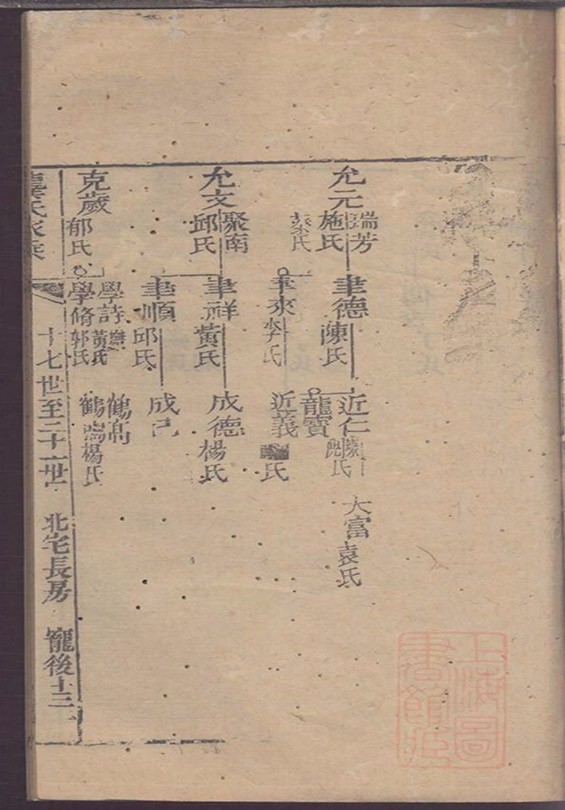 允元瑞芳
施氏
聿德
陳氏
近仁
大富
袁氏
聿來
李氏
龍寶
近義
氏
允文聚南
邱氏
聿祥
黃氏
成德
楊氏
聿順
邱氏
成己
克歲
郁氏
學詩
黃氏
鶴高
學脩
郭氏
鶴鳴
楊氏
氏家乘
十七世至二十一世 北宅長房 寵後十三
上海圖書館藏